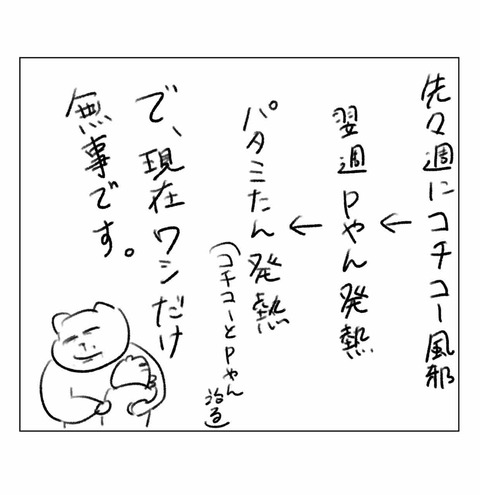 先々週にコチコー風邪
翌週Pやん発熱
パタミたん発熱
(コチコーとPやん治る)
で、現在ワシだけ
無事です。